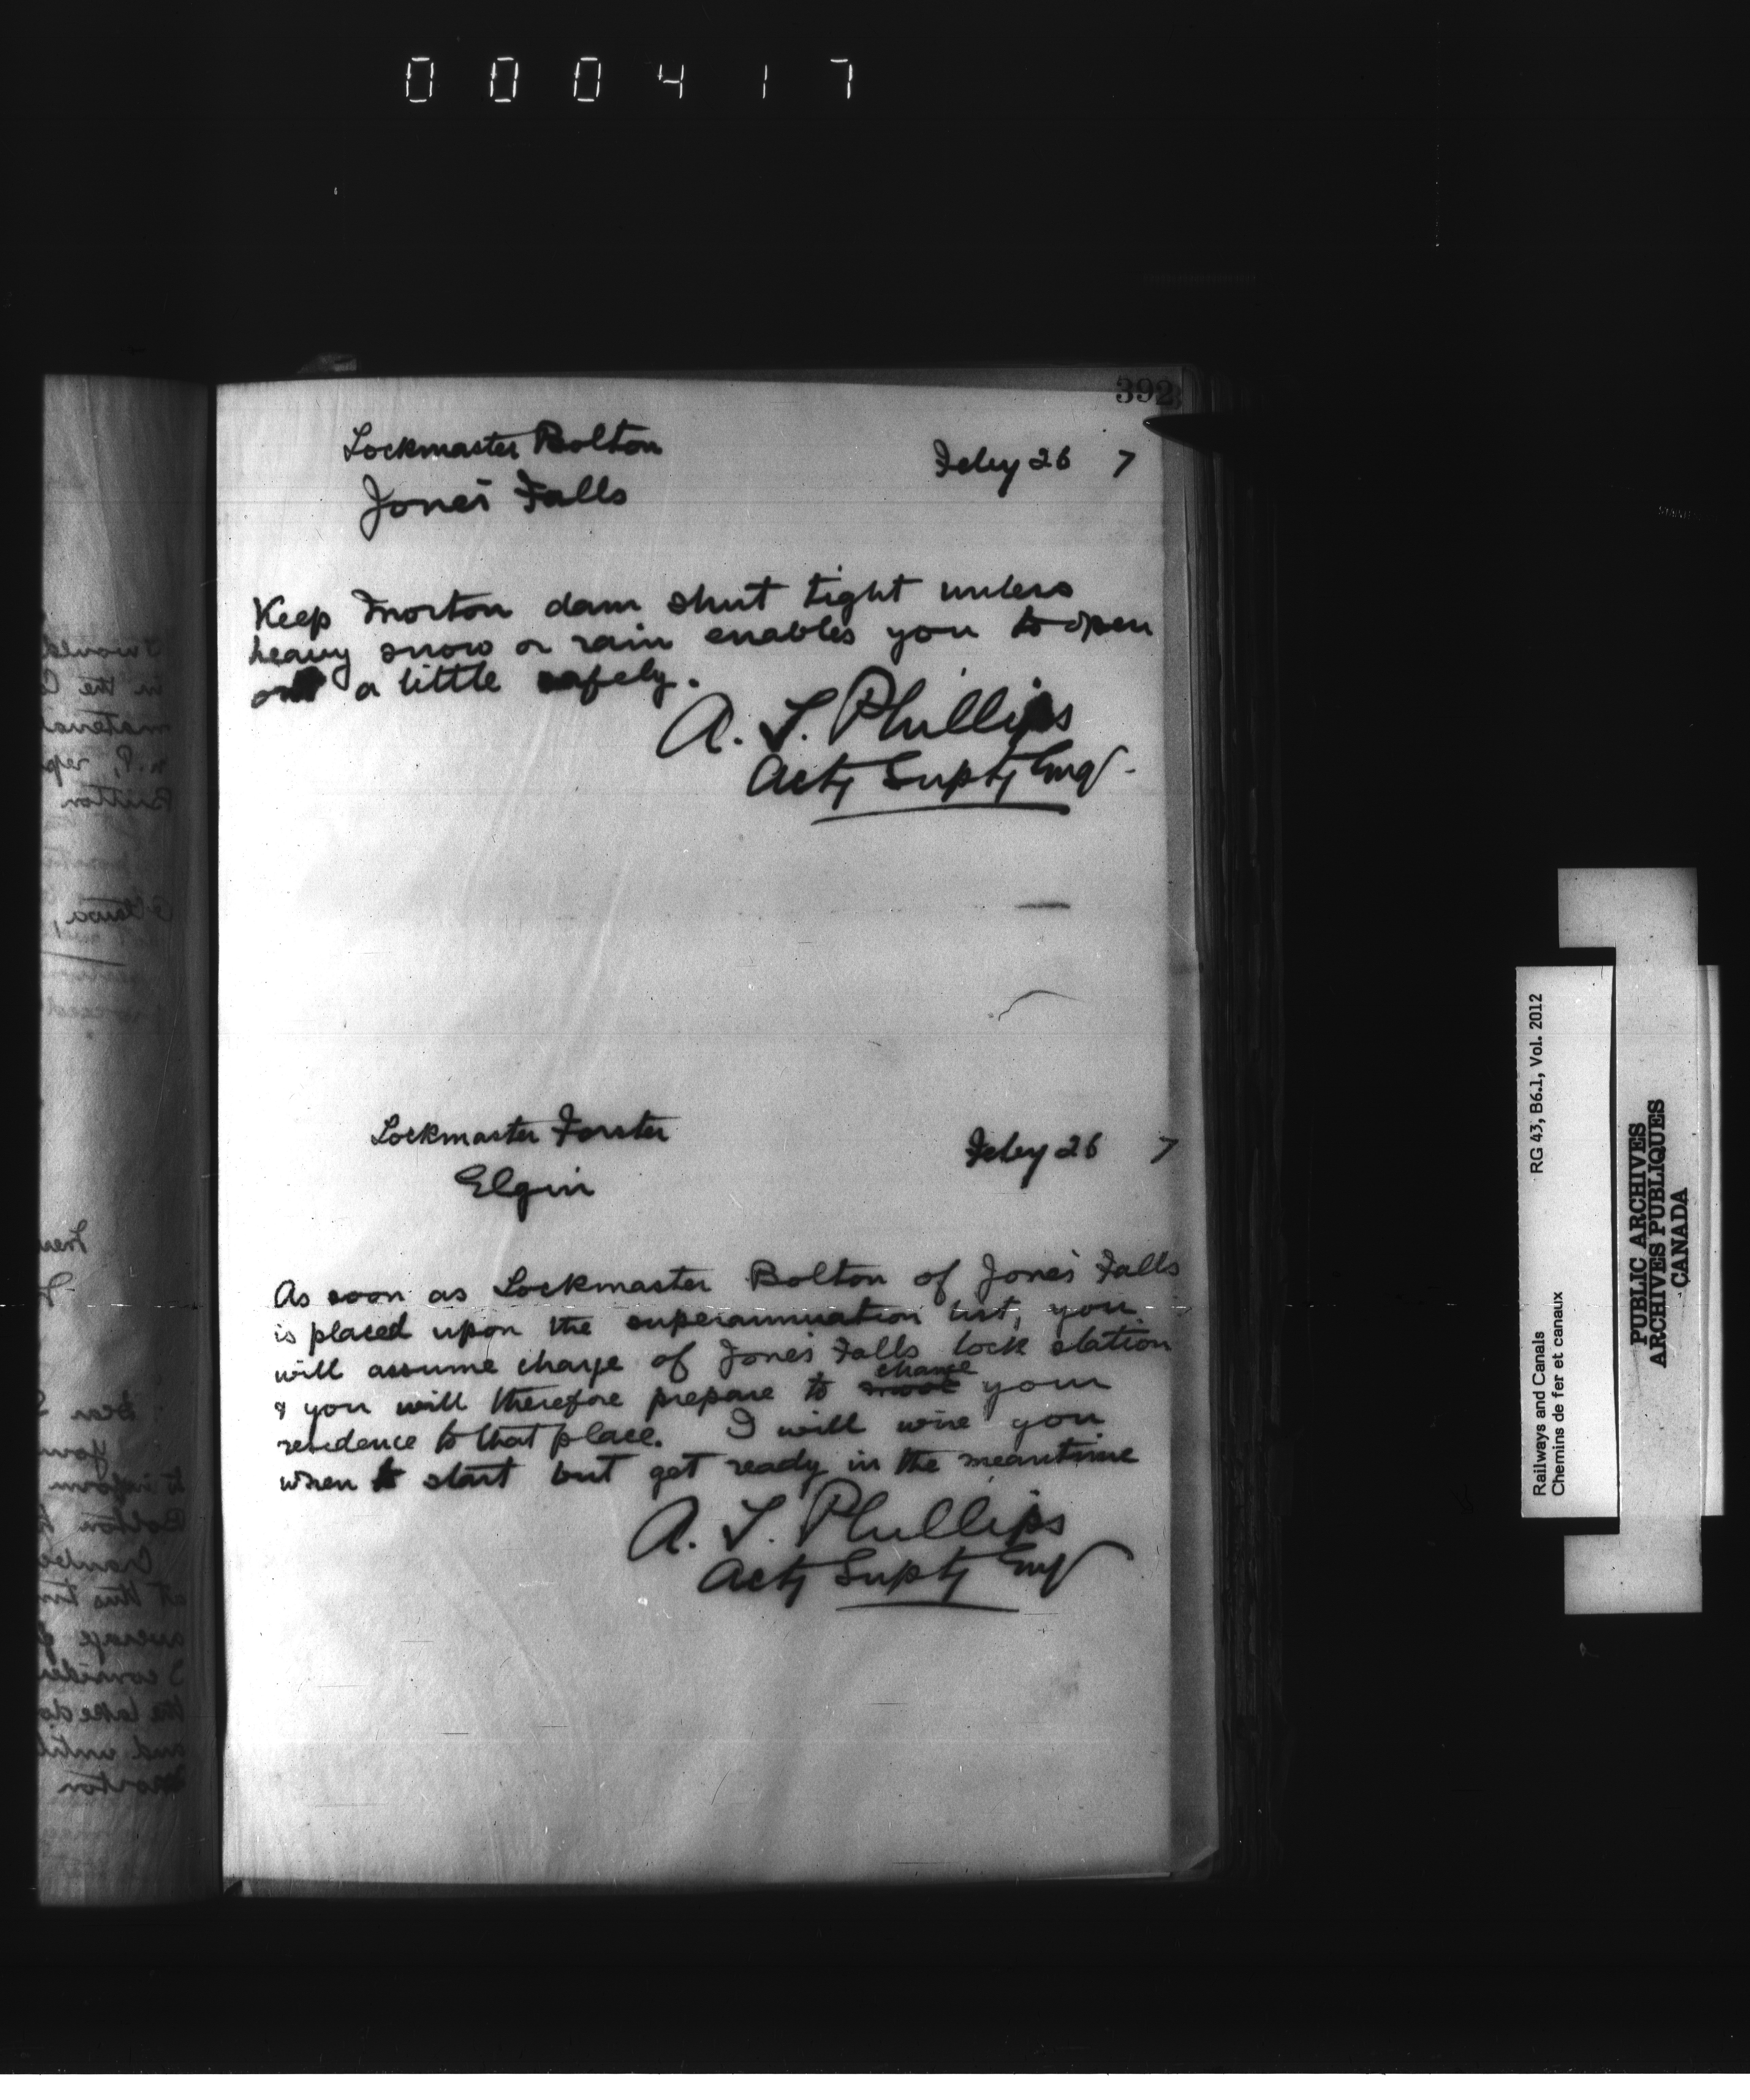 000417
392
Lockmaster Bolton
Feby 26 7
Jones Falls
Keep Morton dam shut tight unless
heavy snow or rain enables you to open
out a little safely.
A. T. Phillips
Actg Suptg Engr.
Lockmaster Forster
Feby 26 7
Elgin
As soon as Lockmaster Bolton of Jones Falls
is placed upon the superannuation list, you
will assume charge of Jones Falls lock station
change
& you will therefore prepare to move your
residence to that place. I will wire you
when to start but get ready in the meantime
A. T. Phillips
Actg Suptg Engr
Railways and Canals RG 43, B6.1, Vol. 2012
Chemins de fer et canaux
PUBLIC ARCHIVES
ARCHIVES PUBLIQUES
CANADA